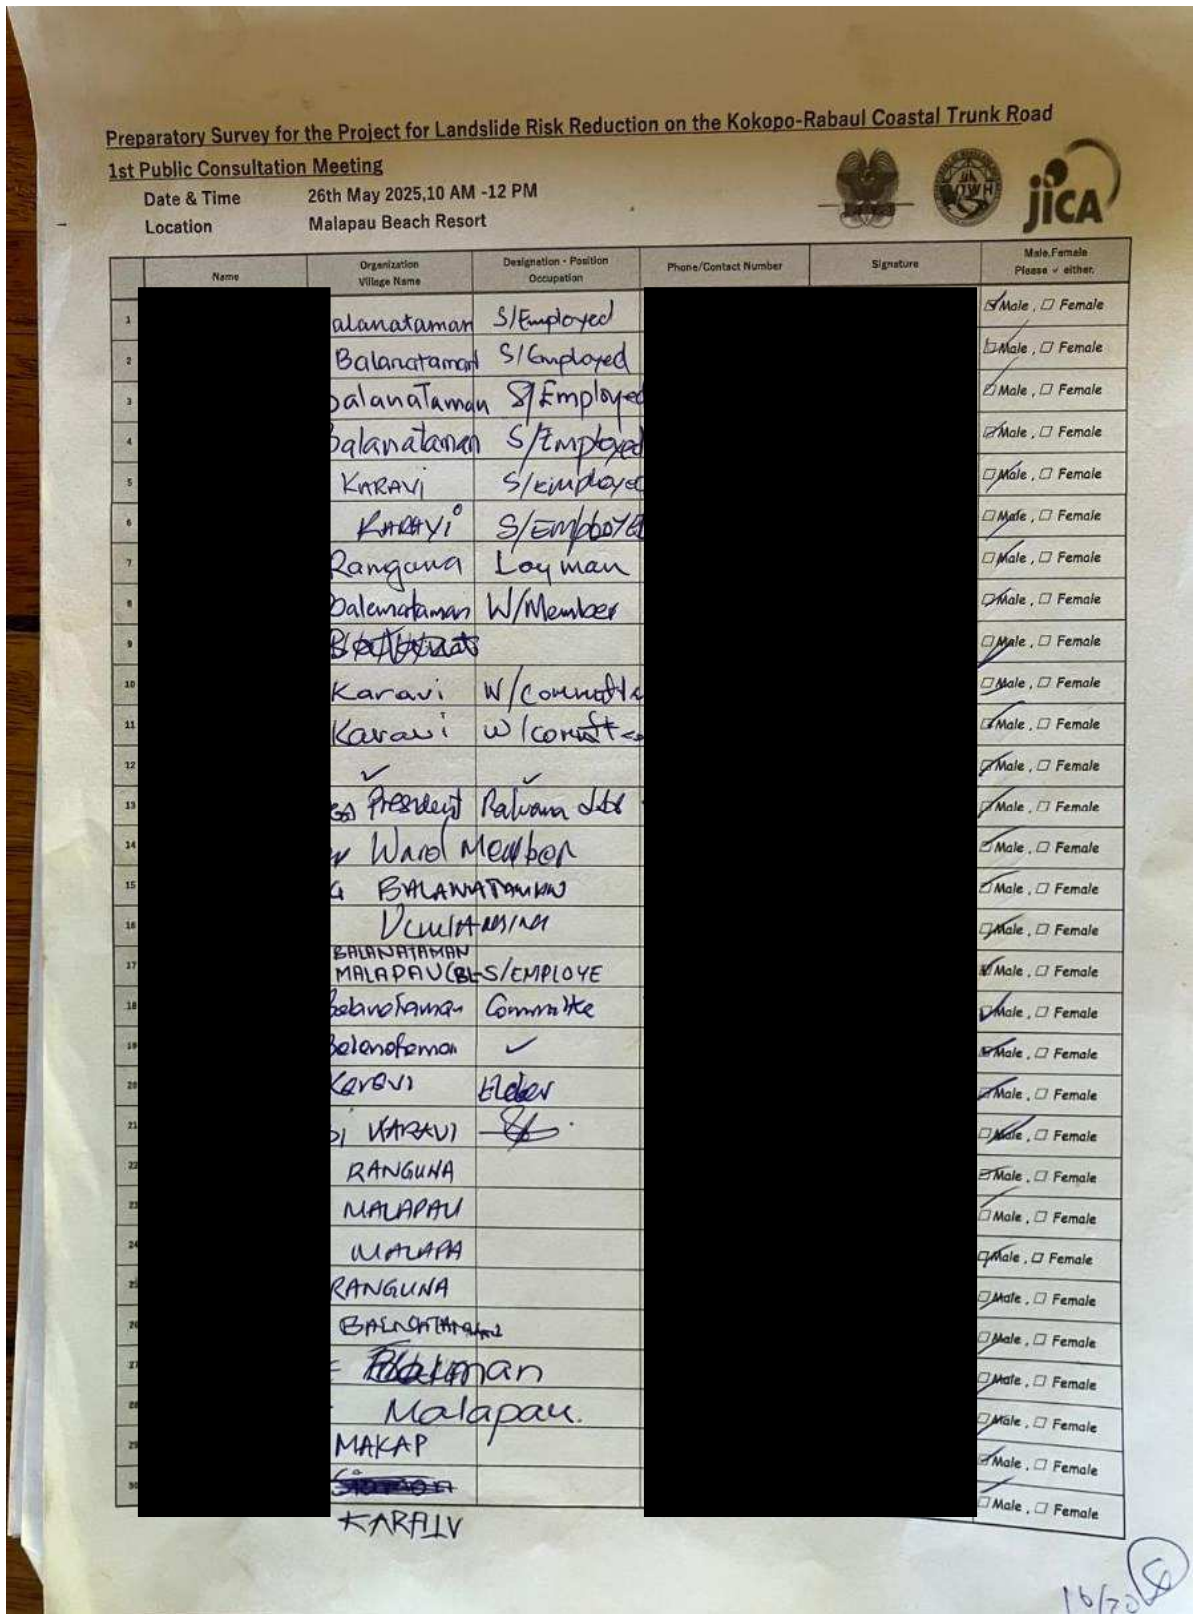 Preparatory Survey for the Project for Landslide Risk Reduction on the Kokopo-Rabaul Coastal Trunk Road
1st Public Consultation Meeting
Date & Time 26th May 2025,10 AM -12 PM
Location Malapau Beach Resort
JICA
Name Organization Village Name Designation - Position Occupation Phone/Contact Number Signature Male,Female Please ✓ either.
1 alanataman S/Employed Male , Female
2 Balanataman S/Employed Male , Female
3 balanaTaman S/Employed Male , Female
4 balanataman S/Employed Male , Female
5 KARAVI S/employed Male , Female
6 S/EMPLOYE Male , Female
7 Ranguna Layman Male , Female
8 W/Member Male , Female
9 Male , Female
10 Karavi Male , Female
11 Karavi Male , Female
12 ✓ ✓ Male , Female
13 President Male , Female
14 Ward Member Male , Female
15 BALANATAMAN Male , Female
16 Male , Female
BALANATAMAN
17 MALAPAU(BL- S/EMPLOYE Male , Female
18 Committe Male , Female
19 ✓ Male , Female
20 Karavi Elder Male , Female
21 KARAVI Male , Female
22 RANGUNA Male , Female
23 MALAPAU Male , Female
24 MALAPA Male , Female
25 RANGUNA Male , Female
26 Male , Female
27 Male , Female
28 Malapau. Male , Female
29 MAKAP Male , Female
30 Male , Female